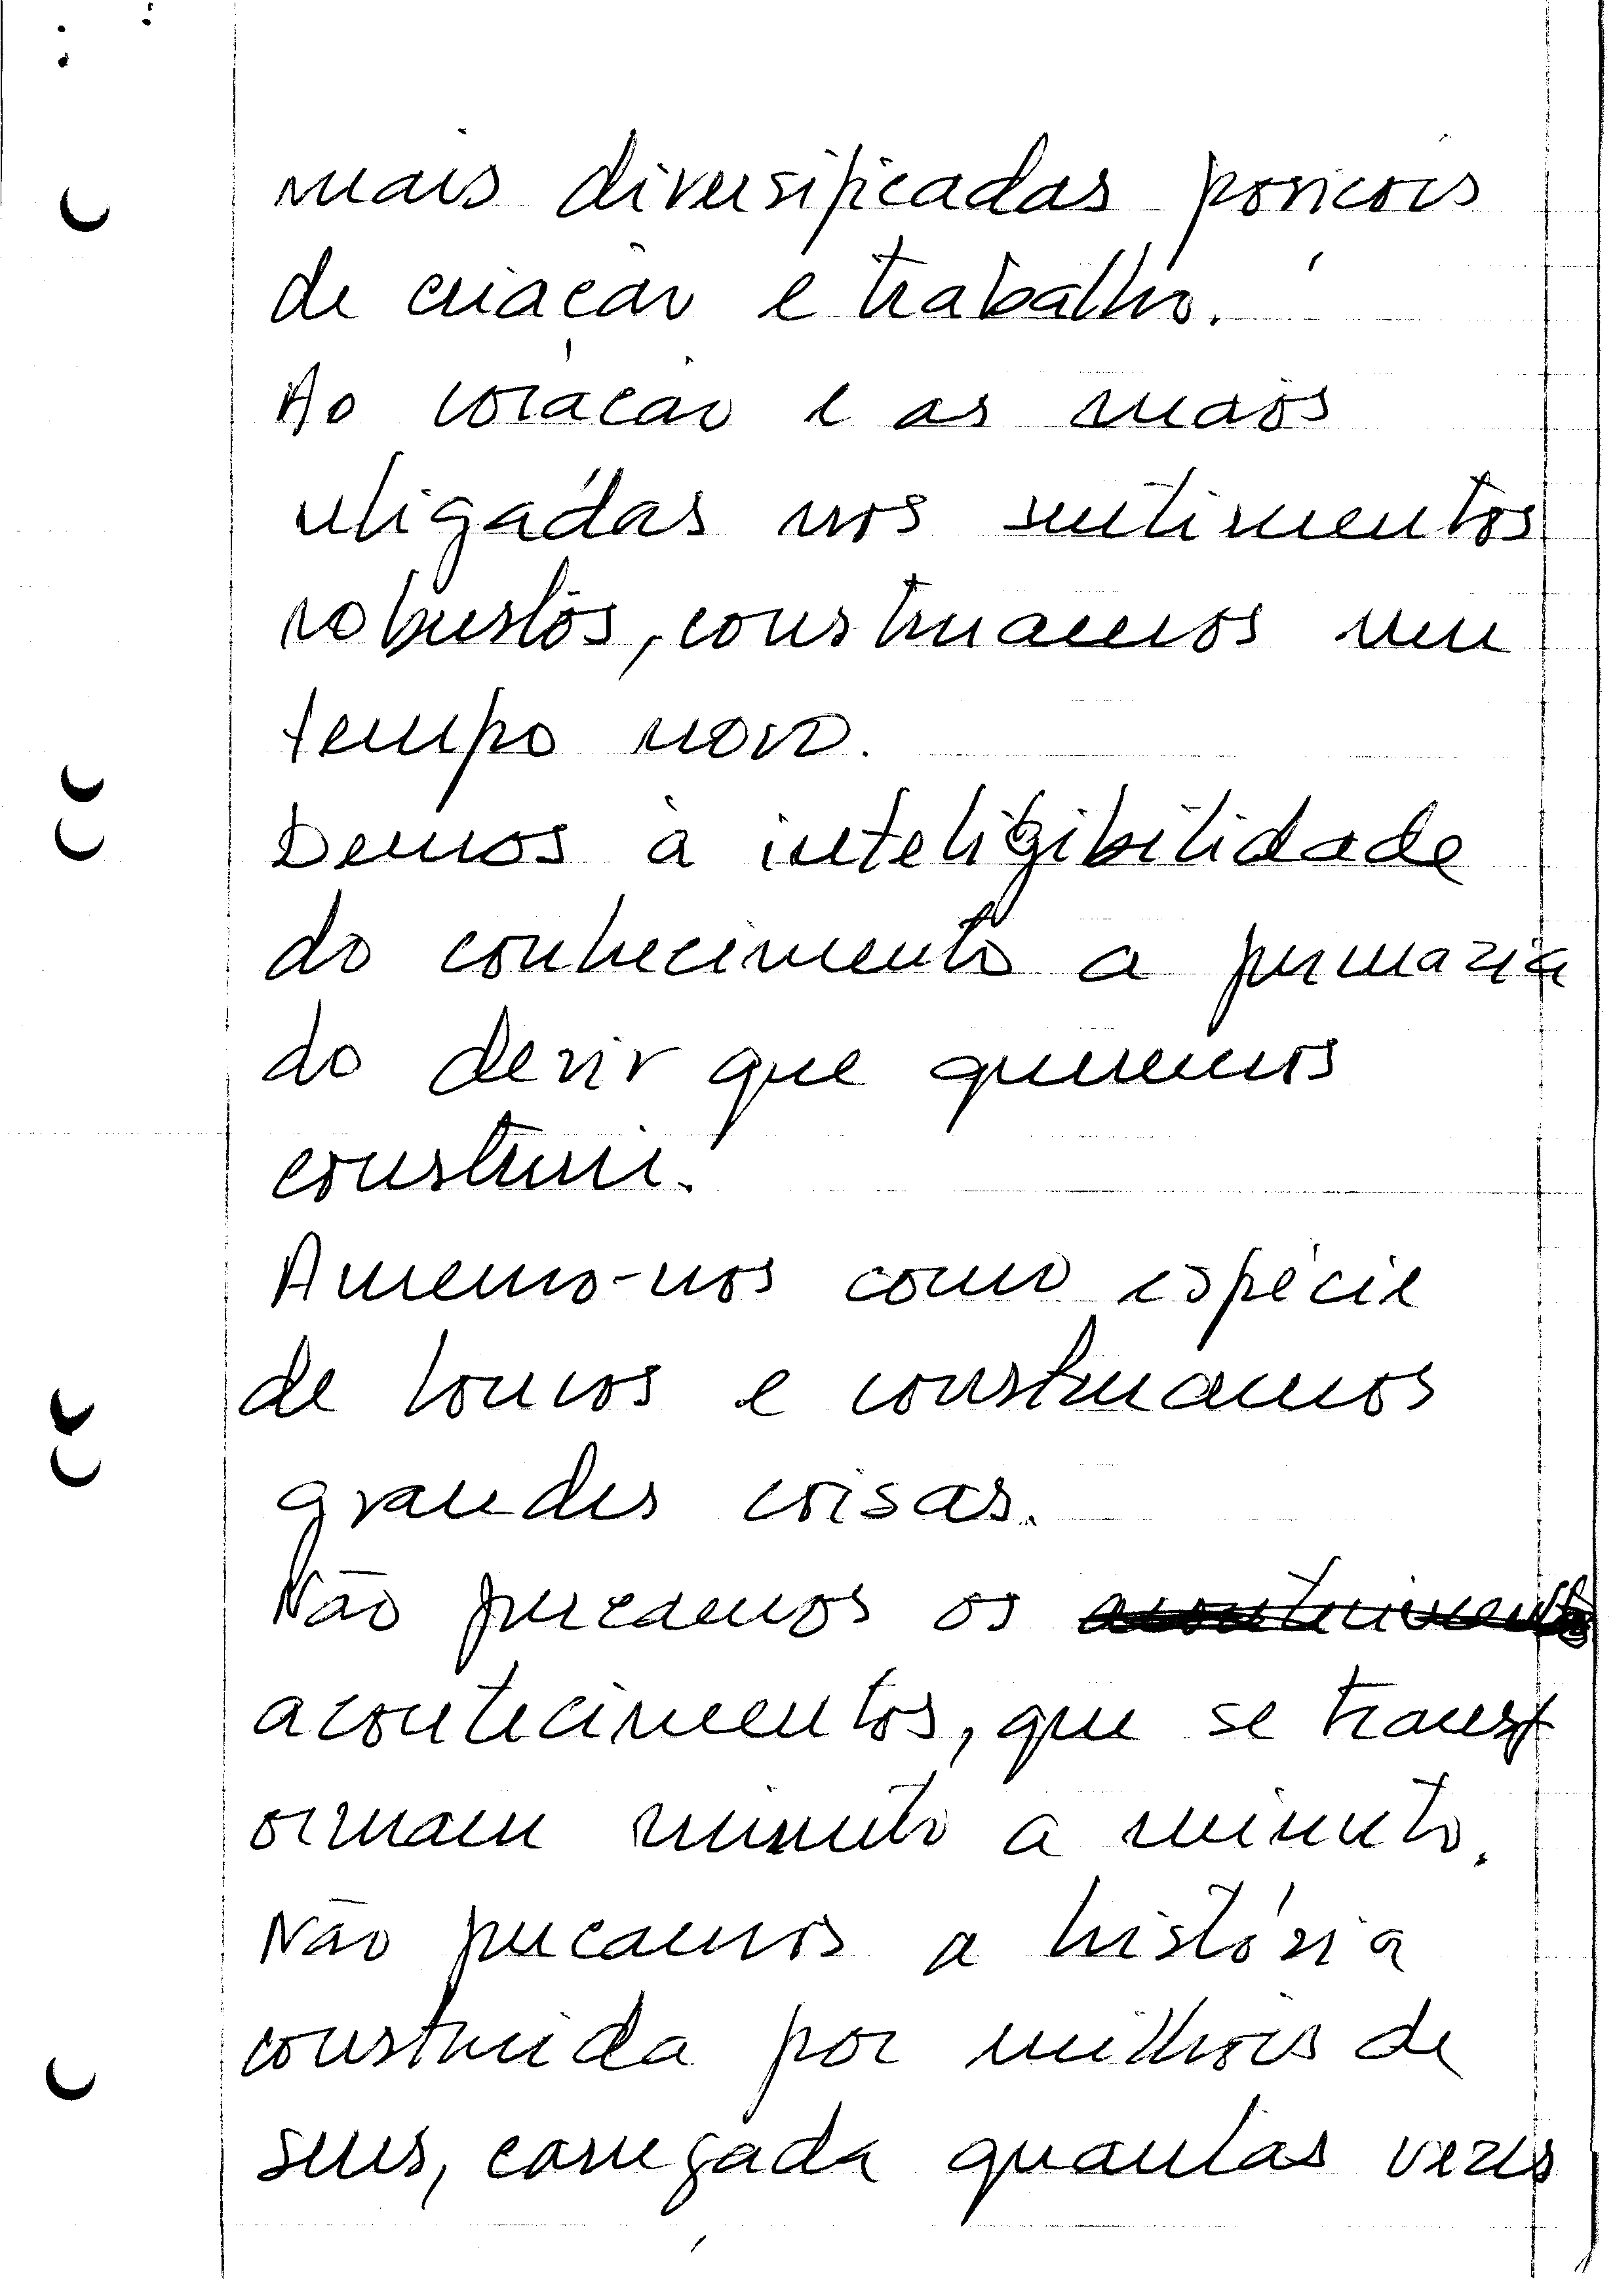 mais diversificadas posições
de criação e trabalho.
Ao coração e as mãos
religadas nos sentimentos
robustos, construamos um
tempo novo.
Demos à inteligibilidade
do conhecimento a primazia
do devir que queremos
construir.
Amemo-nos como espécie
de loucos e construamos
grandes coisas.
Não percamos os
acontecimentos, que se transf
ormam minuto a minuto.
Não percamos a história
construida por milhões de
seres, carregada quantas vezes